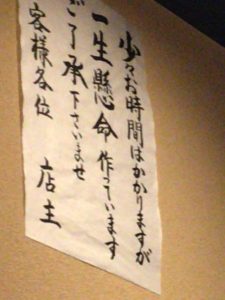 少々お時間はかかりますが
一生懸命作っています
ご了承下さいませ
客様各位 店主